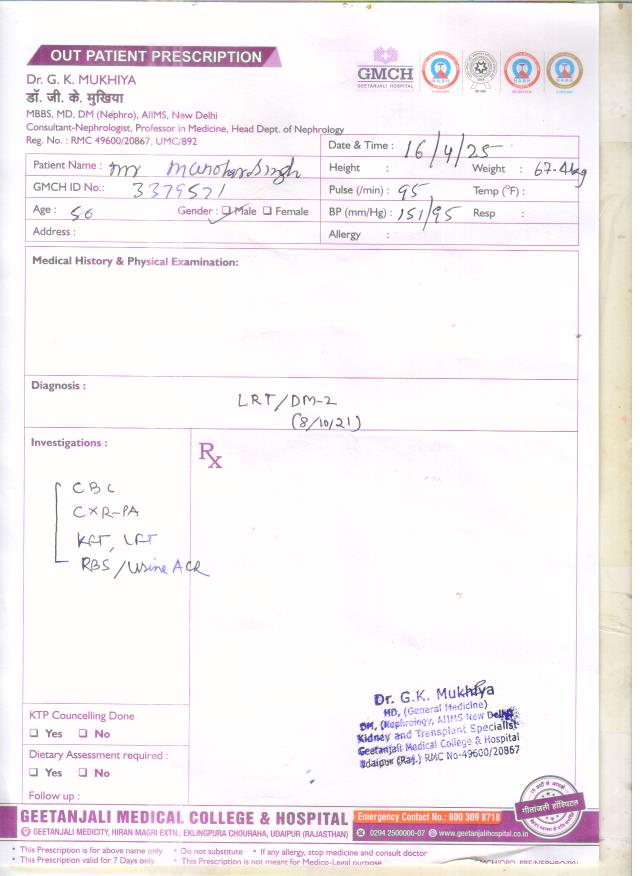 OUT PATIENT PRESCRIPTION
GMCH
GEETANJALI HOSPITAL
Dr. G. K. MUKHIYA
डॉ. जी. के. मुखिया
MBBS, MD, DM (Nephro), AIIMS, New Delhi
Consultant-Nephrologist, Professor in Medicine, Head Dept. of Nephrology
Reg. No. : RMC 49600/20867, UMC/892
Date & Time : 16/4/25
Patient Name : Mr Manohar Singh
Height : Weight : 67.4kg
GMCH ID No.: 3379571
Pulse (/min) : 95 Temp (°F) :
Age : 56 Gender : Male Female
BP (mm/Hg) : 151/95 Resp :
Address :
Allergy :
Medical History & Physical Examination:
Diagnosis :
LRT/DM-2
(8/10/21)
Investigations :
Rx
CBC
CXR-PA
KFT, LFT
RBS/Urine ACR
Dr. G.K. Mukhiya
MD, (General Medicine)
DM, (Nephrology, AIIMS New Delhi)
Kidney and Transplant Specialist
Geetanjali Medical College & Hospital
Udaipur (Raj.) RMC No-49600/20867
KTP Councelling Done
Yes No
Dietary Assessment required :
Yes No
Follow up :
गीतांजली हॉस्पिटल
GEETANJALI MEDICAL COLLEGE & HOSPITAL
Emergency Contact No.: 800 309 8718
GEETANJALI MEDICITY, HIRAN MAGRI EXTN., EKLINGPURA CHOURAHA, UDAIPUR (RAJASTHAN)
0294 2500000-07 www.geetanjalihospital.co.in
• This Prescription is for above name only • Do not substitute • If any allergy, stop medicine and consult doctor
• This Prescription valid for 7 Days only • This Prescription is not meant for Medico-Legal purpose